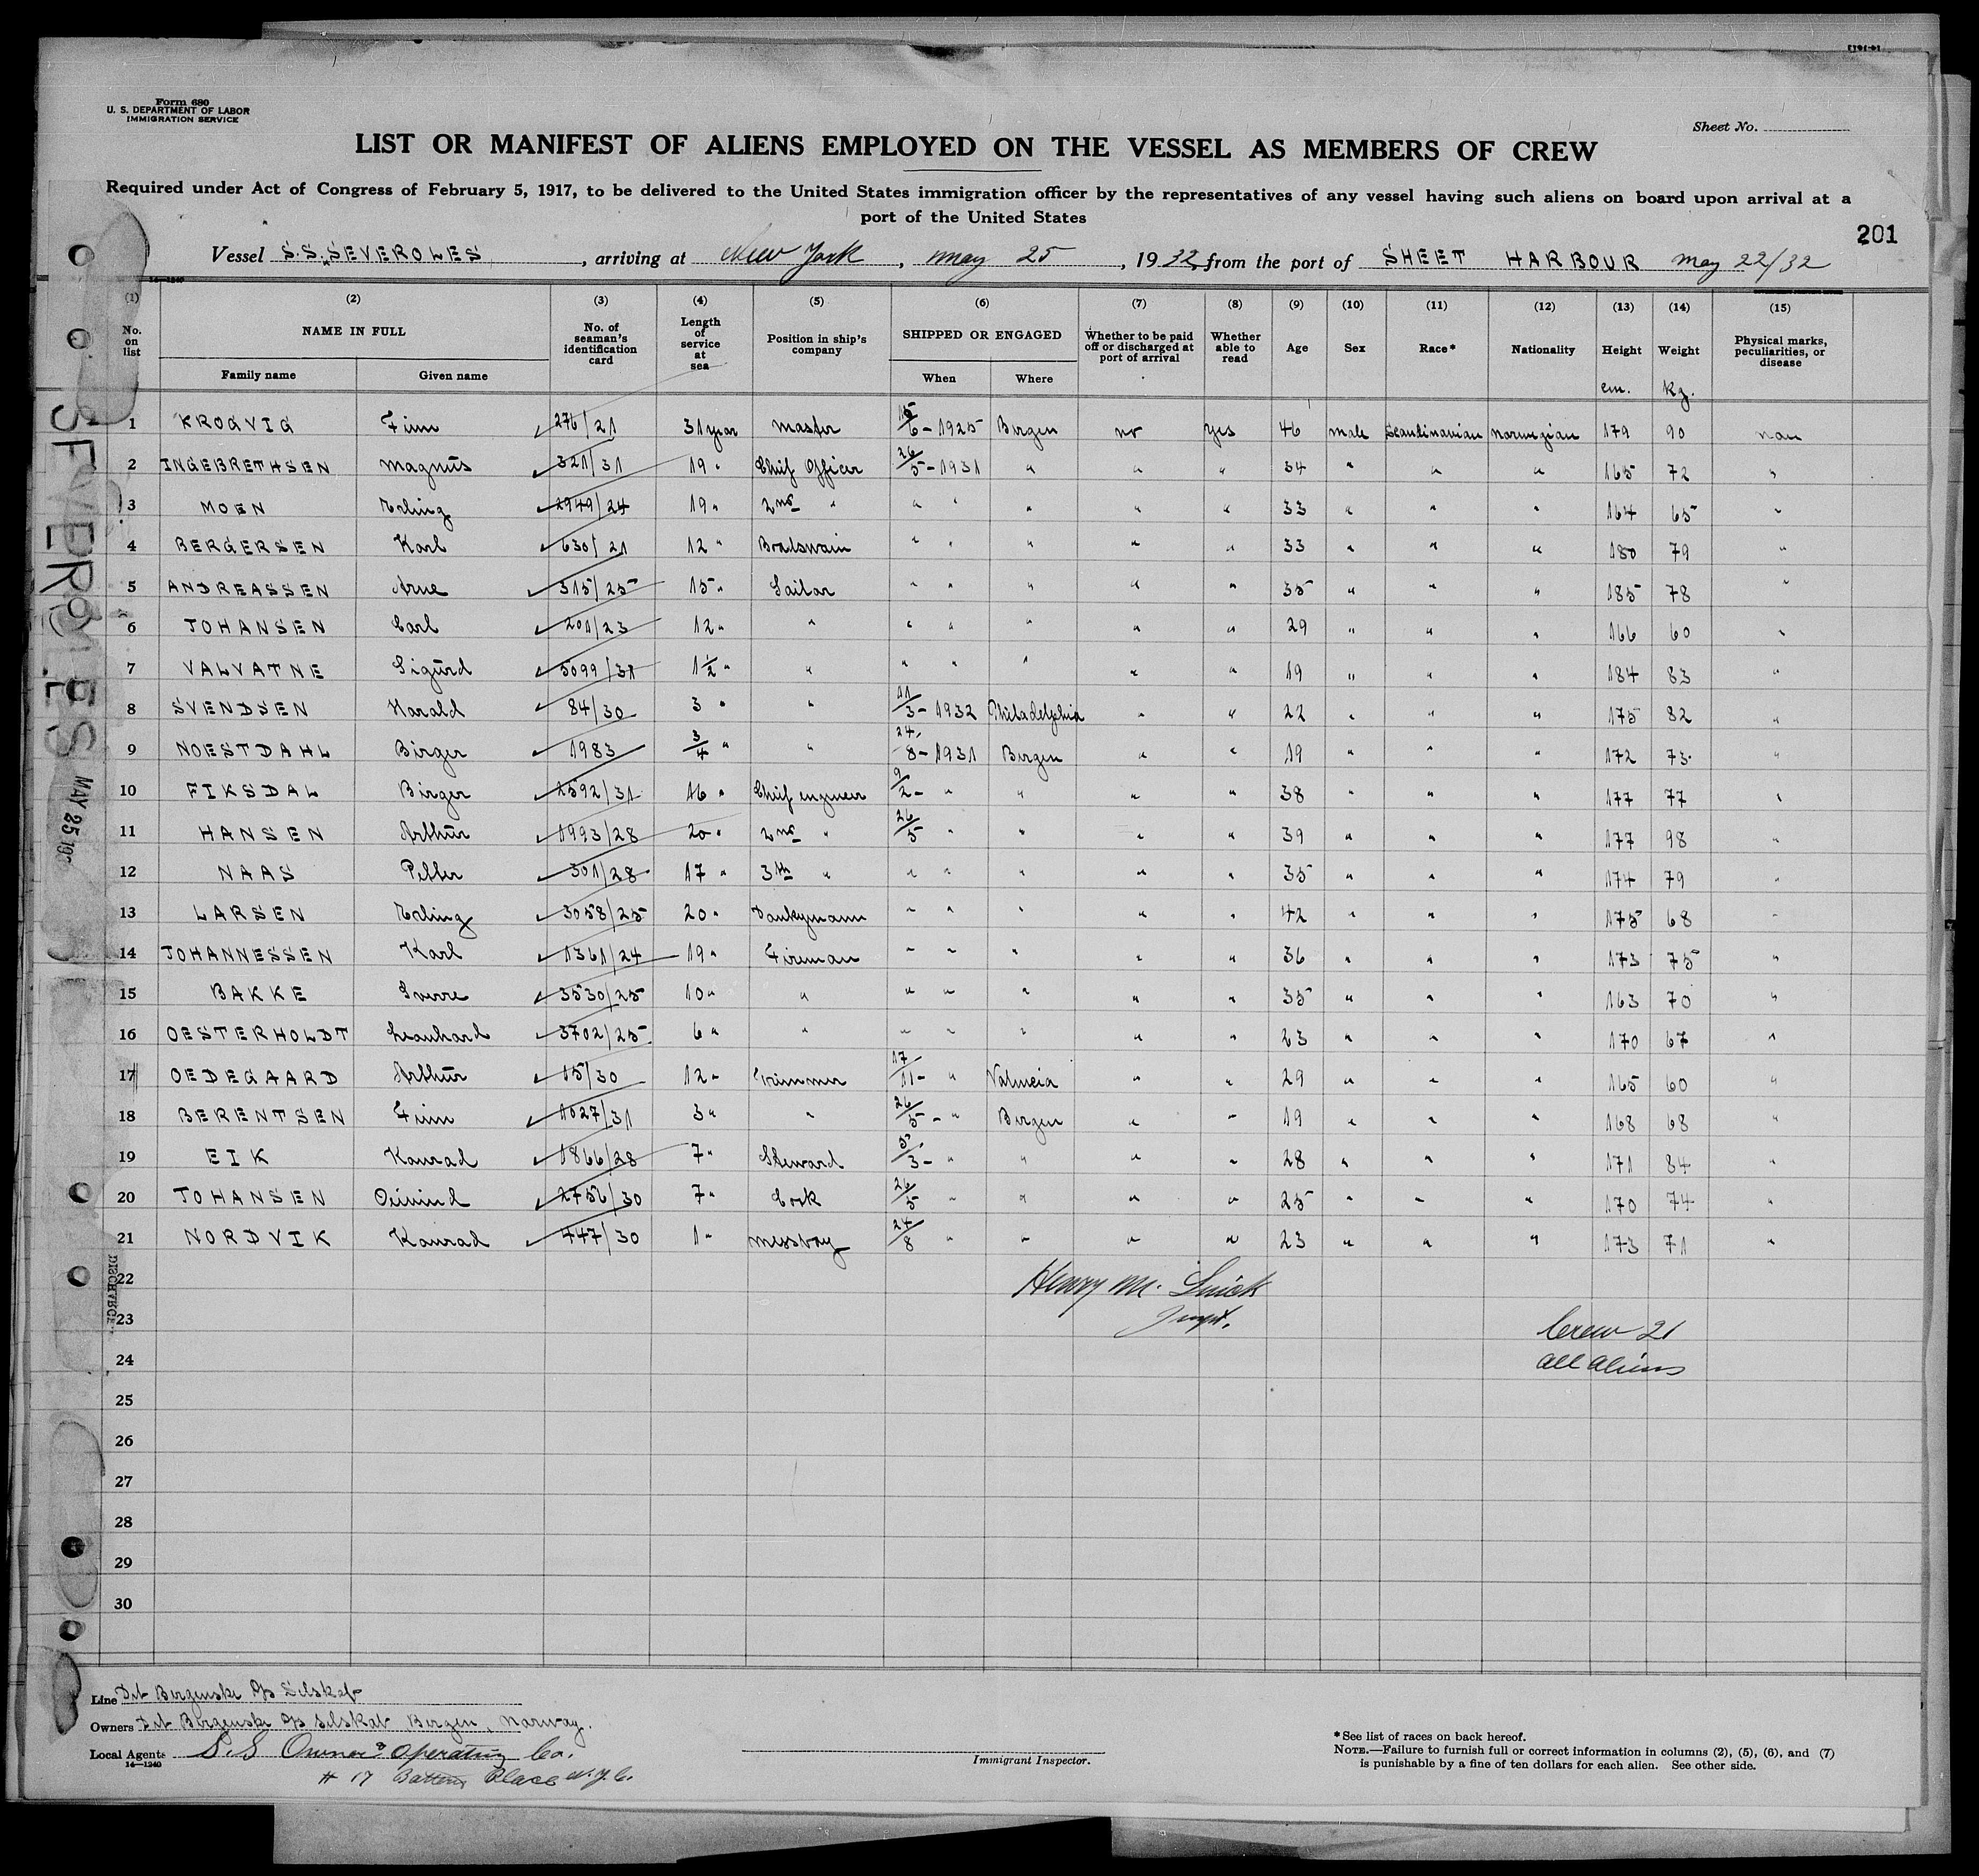 Form 680
U. S. DEPARTMENT OF LABOR
IMMIGRATION SERVICE
Sheet No.
LIST OR MANIFEST OF ALIENS EMPLOYED ON THE VESSEL AS MEMBERS OF CREW
Required under Act of Congress of February 5, 1917, to be delivered to the United States immigration officer by the representatives of any vessel having such aliens on board upon arrival at a
port of the United States
201
Vessel S.S. SEVEROLES, arriving at New York, May 25, 1932, from the port of SHEET HARBOUR May 22/32
(1) (2) (3) (4) (5) (6) (7) (8) (9) (10) (11) (12) (13) (14) (15)
No. on list NAME IN FULL No. of seaman's identification card Length of service at sea Position in ship's company SHIPPED OR ENGAGED Whether to be paid off or discharged at port of arrival Whether able to read Age Sex Race* Nationality Height Weight Physical marks, peculiarities, or disease
Family name Given name When Where cm. kg.
1 KROGVIG Finn 276/21 31 year Master 15/6-1925 Bergen no yes 46 male Scandinavian norwegian 179 90 non
2 INGEBRETHSEN Magnus 321/31 19 " Chief Officer 26/5-1931 " " " 34 " " " 165 72 "
3 MOEN Erling 2949/24 19 " 2nd " " " " " " 33 " " " 164 65 "
4 BERGERSEN Karl 630/21 12 " Boatswain " " " " " 33 " " " 180 79 "
5 ANDREASSEN Arne 315/25 15 " Sailor " " " " " 35 " " " 185 78 "
6 JOHANSEN Carl 201/23 12 " " " " " " " 29 " " " 166 60 "
7 VALVATNE Sigurd 5099/31 1½ " " " " " " " 19 " " " 184 83 "
8 SVENDSEN Harald 84/30 3 " " 11/3-1932 Philadelphia " " 22 " " " 175 82 "
9 NOESTDAHL Birger 1983 3/4 " " 24/8-1931 Bergen " " 19 " " " 172 73 "
10 FIKSDAL Birger 2592/31 16 " Chief engineer 9/2- " " " " 38 " " " 177 77 "
11 HANSEN Arthur 1993/28 20 " 2nd " 26/5 " " " " 39 " " " 177 98 "
12 NAAS Petter 301/28 17 " 3th " " " " " " 35 " " " 174 79 "
13 LARSEN Erling 3058/25 20 " Donkymann " " " " " 42 " " " 175 68 "
14 JOHANNESSEN Karl 1361/24 19 " Fireman " " " " " 36 " " " 173 75 "
15 BAKKE Sverre 3530/25 10 " " " " " " " 35 " " " 163 70 "
16 OESTERHOLDT Leonhard 3702/25 6 " " " " " " " 23 " " " 170 67 "
17 OEDEGAARD Arthur 15/30 12 " Trimmer 17/11- " Valencia " " 29 " " " 165 60 "
18 BERENTSEN Finn 1027/31 3 " " 26/5- " Bergen " " 19 " " " 168 68 "
19 EIK Konrad 1866/28 7 " Steward 5/3- " " " " 28 " " " 171 84 "
20 JOHANSEN Oeivind 2756/30 7 " Cook 26/5 " " " " 25 " " " 170 74 "
21 NORDVIK Konrad 447/30 1 " messboy 24/8 " " " " 23 " " " 173 71 "
22
23
24
25
26
27
28
29
30
Henry M.
Inspt.
Crew 21
all aliens
SEVEROLES
MAY 25
Line Det Bergenske D/S Selskab
Owners Det Bergenske D/S Selskab Bergen, Norway.
Local Agents S.S Owners Operating Co.
14—1240
# 17 Battery Place N.Y.C.
Immigrant Inspector.
*See list of races on back hereof.
NOTE.—Failure to furnish full or correct information in columns (2), (5), (6), and (7)
is punishable by a fine of ten dollars for each alien. See other side.